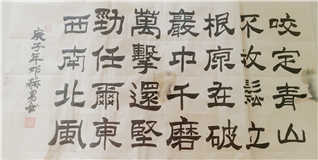 咬定青山
不放鬆立
根原在破
巖中千磨
萬擊還堅
勁任爾東
西南北風
庚子年